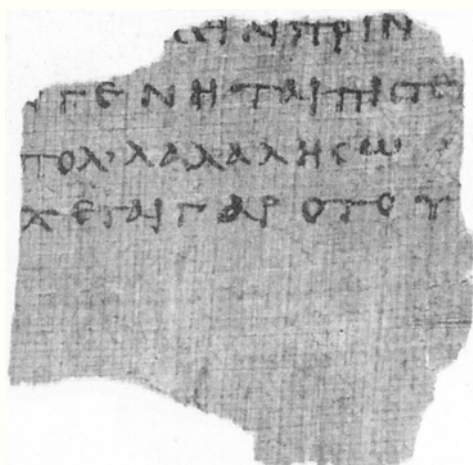 ΜΙΝΠΡΙΝ
ΝΓΕΝΗΤΑΙΠΙϹΤΕ
ΠΟΛ’ΛΑΛΑΛΗϹΩ
ΧΕΤΑΙΓΑΡΟΤΟΥ